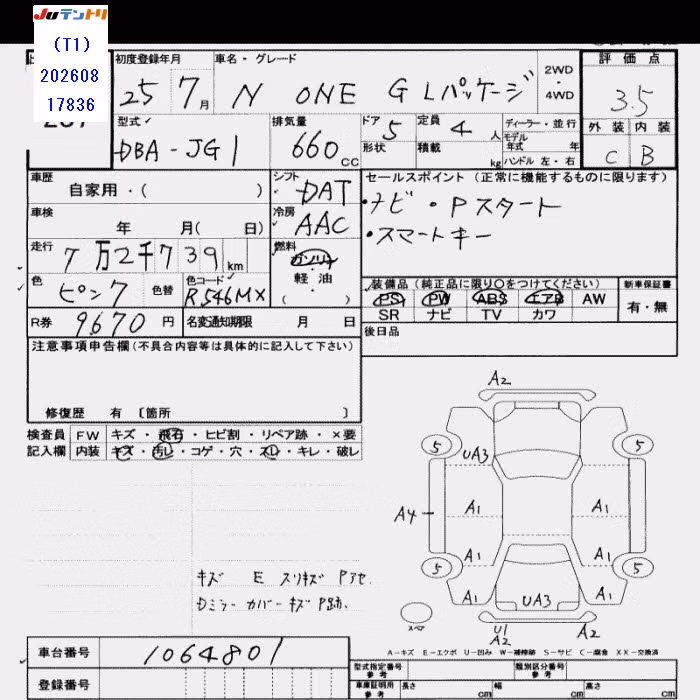 JUテントリ
(T1)
202608
17836
初度登録年月
25 7月
車名・グレード
N ONE G Lパッケージ
2WD
・
4WD
評価点
3.5
外装 内装
C B
型式
DBA-JG1
排気量
660cc
ドア 5
形状
定員 4人
積載 kg
ディーラー・並行
モデル
年式 年
ハンドル 左・右
車歴
自家用・( )
シフト DAT
セールスポイント (正常に機能するものに限ります)
・ナビ ・Pスタート
・スマートキー
車検
年 月( 日)
冷房 AAC
走行
7万2千739km
燃料
ガソリン
・
軽油
・
( )
色 ピンク 色替
色コード R546MX
装備品(純正品に限り○をつけてください)
PS PW ABS エアB AW
SR ナビ TV カワ
新車保証書
有・無
R券 9670円
名変通知期限 月 日
後日品
注意事項申告欄(不具合内容等は具体的に記入して下さい)
修復歴 有 〔箇所 〕
検査員 FW キズ・飛石・ヒビ割・リペア跡・×要
記入欄 内装 キズ・汚レ・コゲ・穴・スレ・キレ・破レ
A2
5 5
UA3
A1 A1
A4
A1 A1
5 5
A1 UA3 A1
スペア
U1
A2 A2
キズ E スリキズ Pアセ
Dミラーカバーキズ P跡
A-キズ E-エクボ U-凹み W-補修跡 S-サビ C-腐食 XX-交換済
車台番号 1064801
登録番号
型式指定番号
参考
類別区分番号
参考
車庫証明用
参考
長さ cm 幅 cm 高さ cm